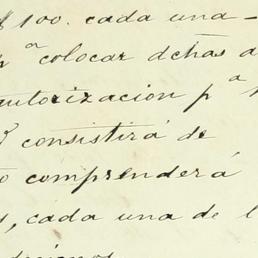 $ 100. cada una -
pª colocar dchas a
autorizacion pª
consistirá de
comprenderá
, cada una de l